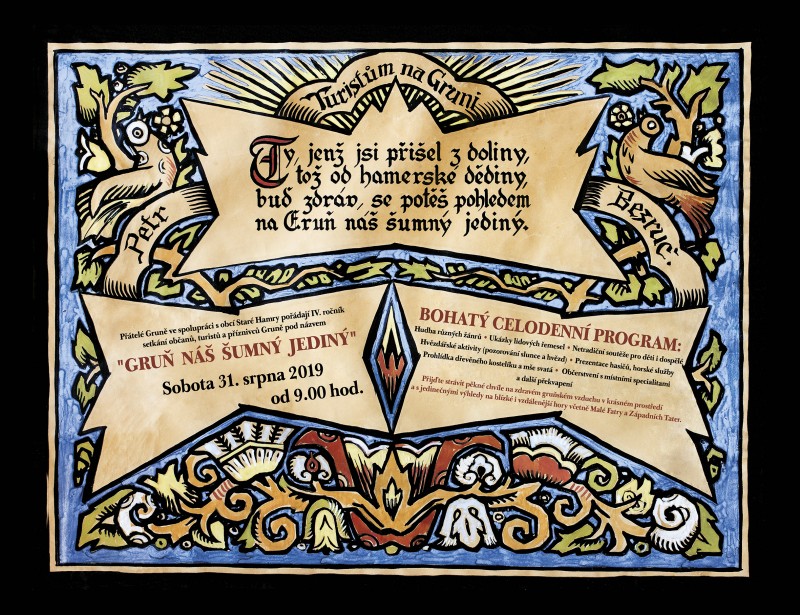 Turistům na Gruni
Ty, jenž jsi přišel z doliny,
tož od hamerské dědiny,
buď zdráv, se potěš pohledem
na Gruň náš šumný jediný.
Petr
Bezruč.
Přátelé Gruně ve spolupráci s obcí Staré Hamry pořádají IV. ročník
setkání občanů, turistů a příznivců Gruně pod názvem
"GRUŇ NÁŠ ŠUMNÝ JEDINÝ"
Sobota 31. srpna 2019
od 9.00 hod.
BOHATÝ CELODENNÍ PROGRAM:
Hudba různých žánrů • Ukázky lidových řemesel • Netradiční soutěže pro děti i dospělé
Hvězdářské aktivity (pozorování slunce a hvězd) • Prezentace hasičů, horské služby
Prohlídka dřevěného kostelíku a mše svatá • Občerstvení s místními specialitami
a další překvapení
Přijďte strávit pěkné chvíle na zdravém gruňském vzduchu v krásném prostředí
a s jedinečnými výhledy na blízké i vzdálenější hory včetně Malé Fatry a Západních Tater.